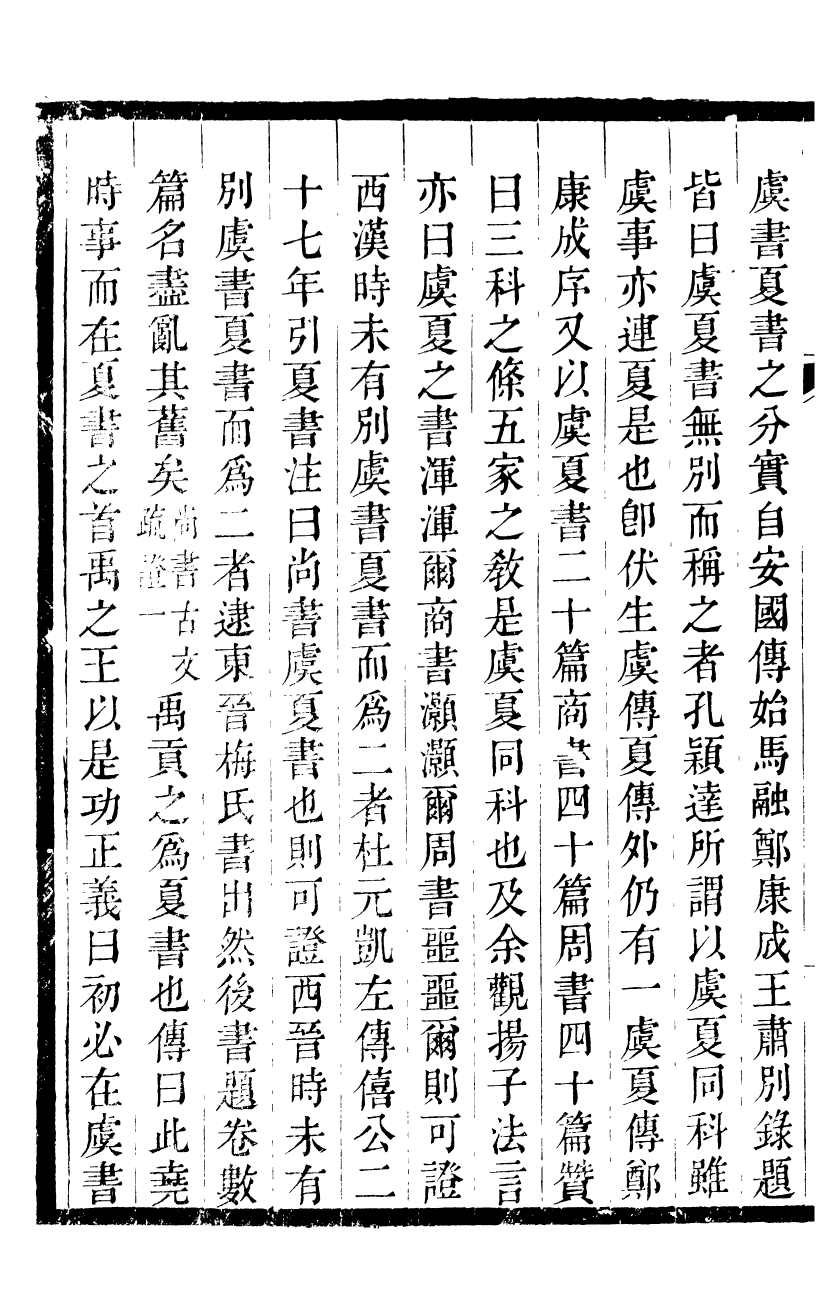 虞書夏書之分實自安國傳始馬融鄭康成王肅別錄題
皆曰虞夏書無別而稱之者孔穎達所謂以虞夏同科雖
虞事亦連夏是也卽伏生虞傳夏傳外仍有一虞夏傳鄭
康成序又以虞夏書二十篇商書四十篇周書四十篇贊
曰三科之條五家之敎是虞夏同科也及余觀揚子法言
亦曰虞夏之書渾渾爾商書灝灝爾周書噩噩爾則可證
西漢時未有別虞書夏書而爲二者杜元凱左傳僖公二
十七年引夏書注曰尚書虞夏書也則可證西晉時未有
別虞書夏書而爲二者逮東晉梅氏書出然後書題卷數
篇名盡亂其舊矣尚書古文疏證一禹貢之爲夏書也傳曰此堯
時事而在夏書之首禹之王以是功正義曰初必在虞書